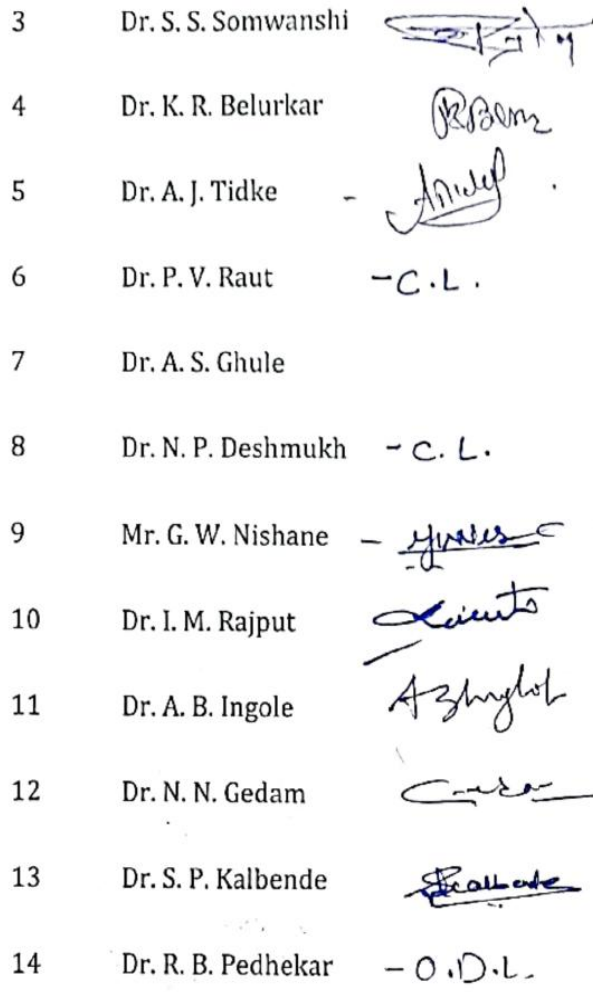 3 Dr. S. S. Somwanshi
4 Dr. K. R. Belurkar
5 Dr. A. J. Tidke -
6 Dr. P. V. Raut - C.L.
7 Dr. A. S. Ghule
8 Dr. N. P. Deshmukh - C. L.
9 Mr. G. W. Nishane -
10 Dr. I. M. Rajput
11 Dr. A. B. Ingole
12 Dr. N. N. Gedam
13 Dr. S. P. Kalbende
14 Dr. R. B. Pedhekar - O.D.L.